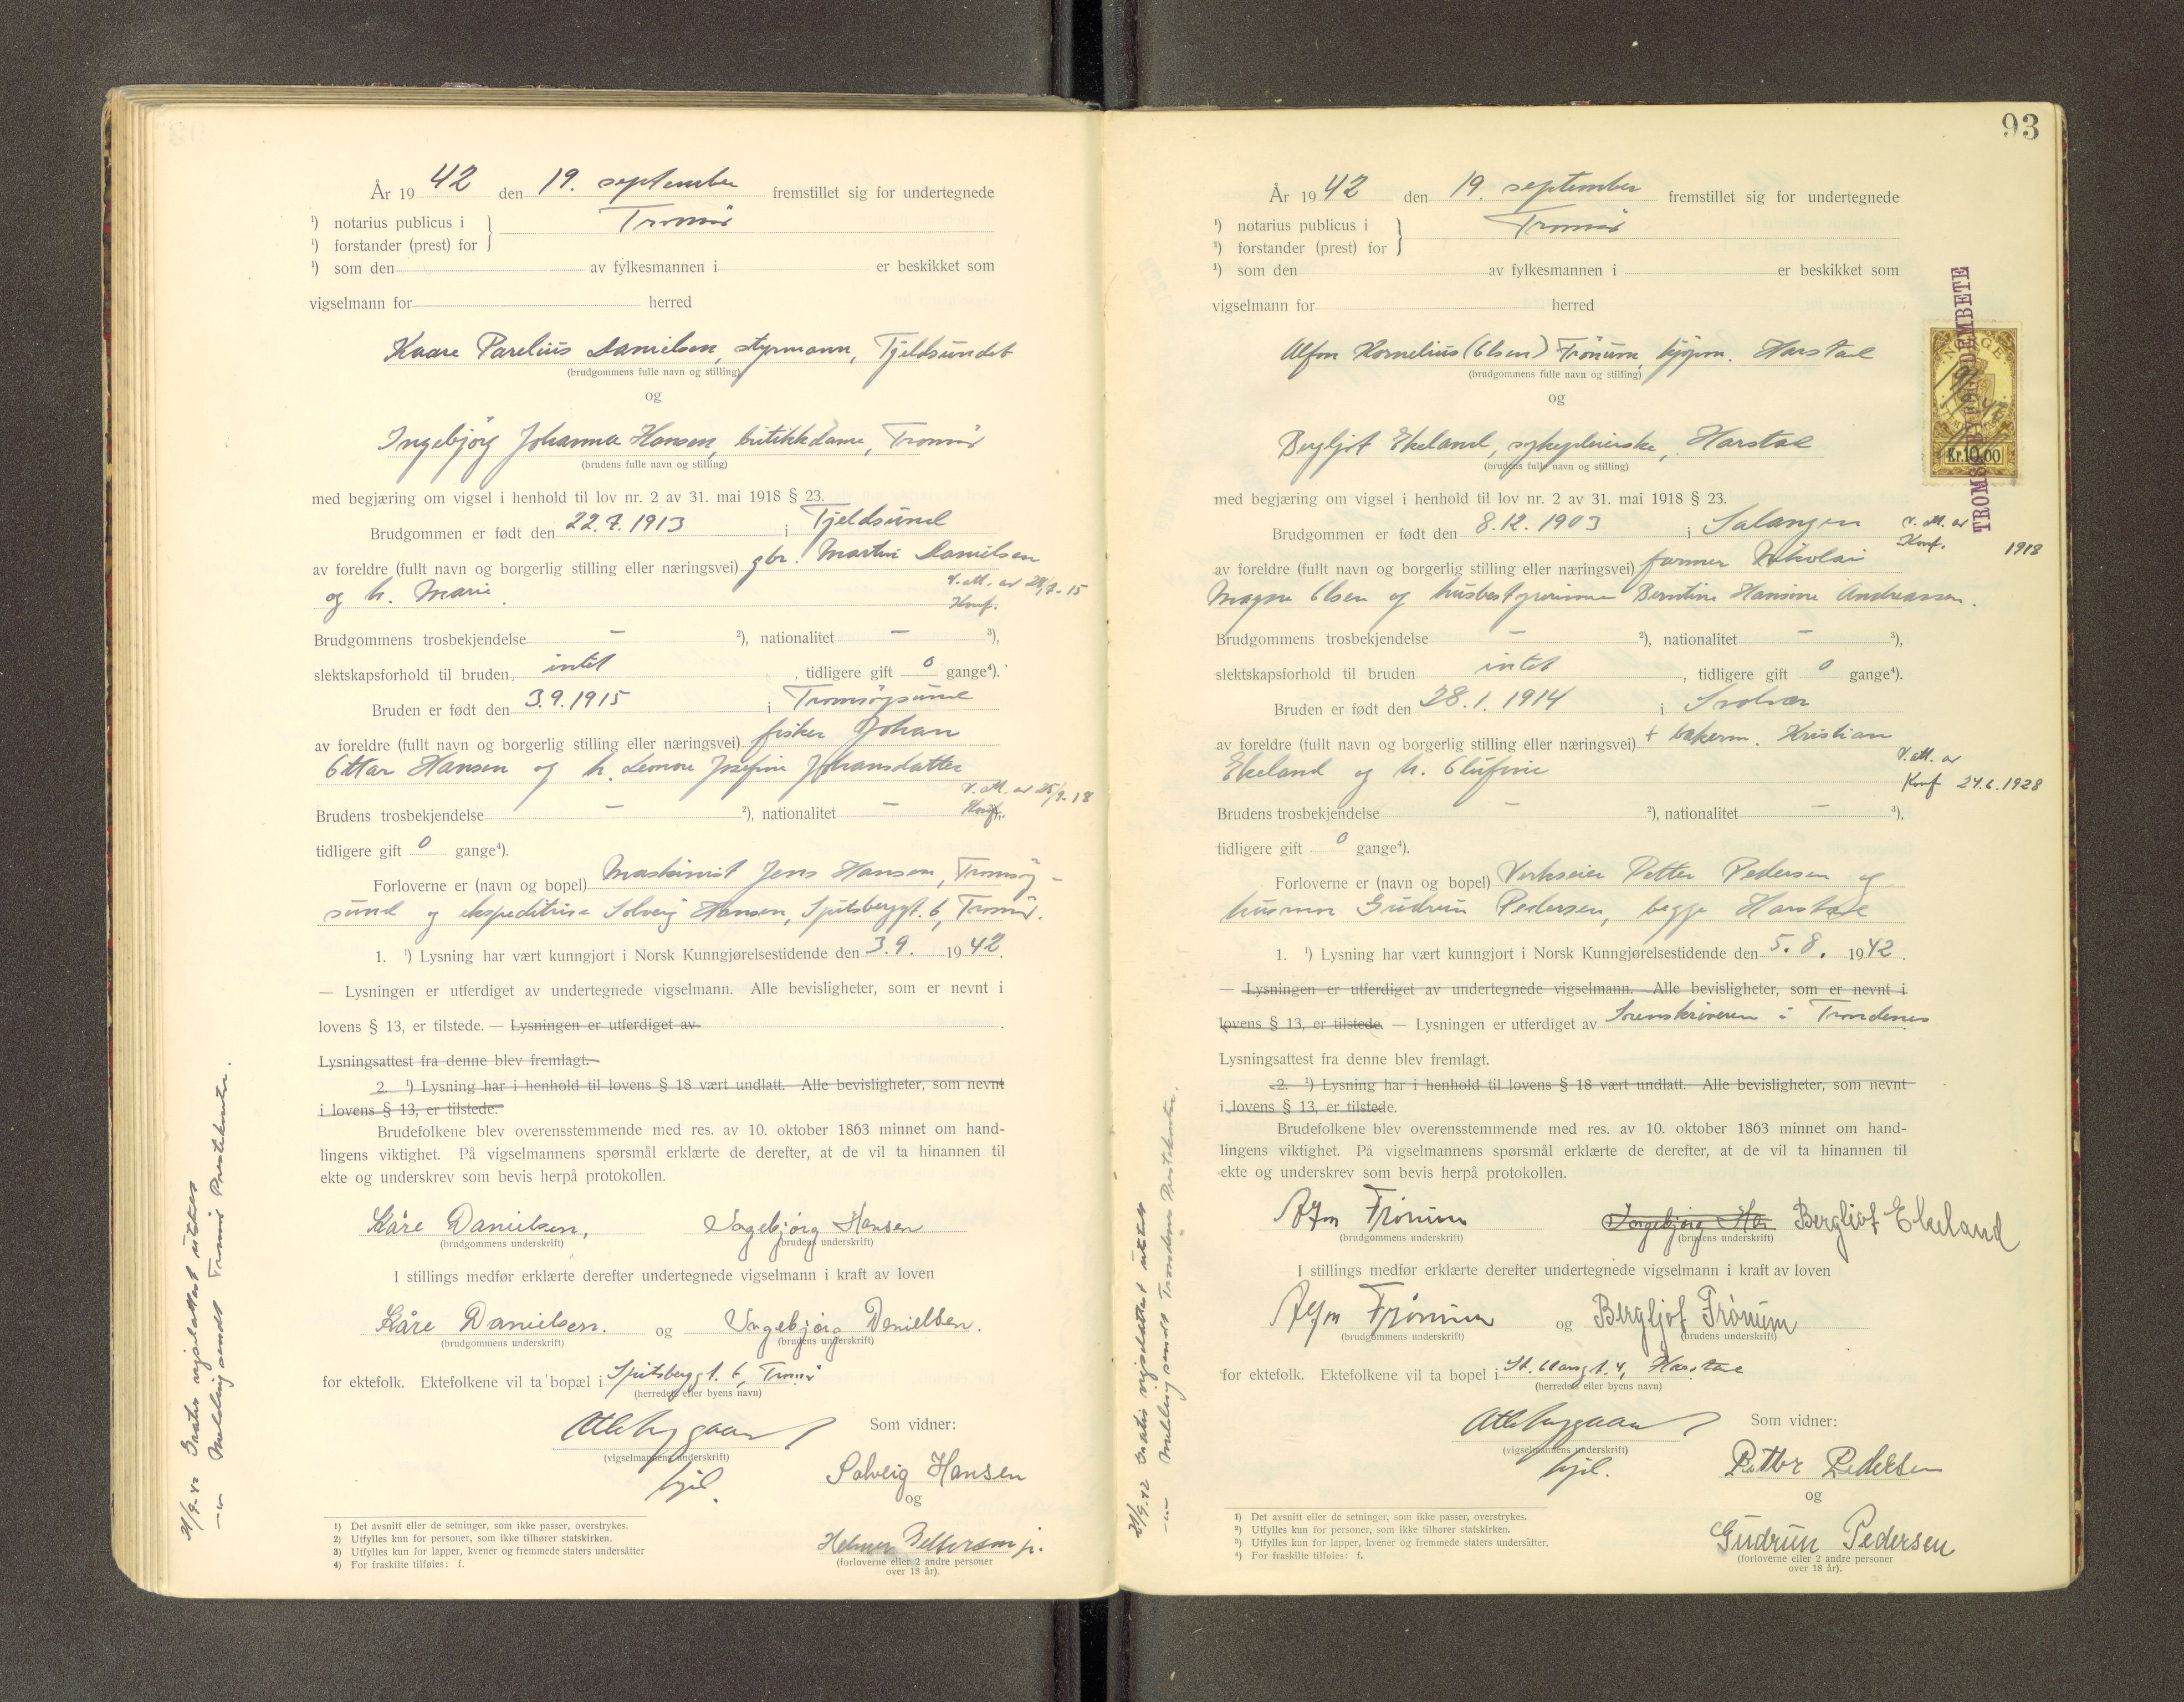 År 1942 den 19. september fremstillet sig for undertegnede
¹) notarius publicus i } Tromsö
¹) forstander (prest) for
¹) som den av fylkesmannen i er beskikket som
vigselmann for herred
Kaare Parelius Danielsen, styrmann, Tjeldsundet
(brudgommens fulle navn og stilling)
og
Ingebjörg Johanna Hansen, butikkdame, Tromsö
(brudens fulle navn og stilling)
med begjæring om vigsel i henhold til lov nr. 2 av 31. mai 1918 § 23.
Brudgommen er født den 22.7.1913 i Tjeldsund
av foreldre (fullt navn og borgerlig stilling eller næringsvei) gbr. Martin Danielsen
og h. Marie
Brudgommens trosbekjendelse – ²), nationalitet – ³),
slektskapsforhold til bruden intet, tidligere gift 0 gange⁴).
Bruden er født den 3.9.1915 i Tromsöysund
av foreldre (fullt navn og borgerlig stilling eller næringsvei) fisker Johan
Ottar Hansen og h. Leonore Josefine Johansdatter
Brudens trosbekjendelse – ²), nationalitet –
tidligere gift 0 gange⁴).
Forloverne er (navn og bopel) Maskinist Jens Hansen, Tromsöy-
sund og ekspeditrise Solveig Hansen, Spitsbergt. 6, Tromsö.
1. ¹) Lysning har vært kunngjort i Norsk Kunngjørelsestidende den 3.9. 1942.
— Lysningen er utferdiget av undertegnede vigselmann. Alle bevisligheter, som er nevnt i
lovens § 13, er tilstede. — Lysningen er utferdiget av
Lysningsattest fra denne blev fremlagt.
2. ¹) Lysning har i henhold til lovens § 18 vært undlatt. Alle bevisligheter, som nevnt
i lovens § 13, er tilstede.
Brudefolkene blev overensstemmende med res. av 10. oktober 1863 minnet om hand-
lingens viktighet. På vigselmannens spørsmål erklærte de derefter, at de vil ta hinannen til
ekte og underskrev som bevis herpå protokollen.
Kåre Danielsen, Ingebjørg Hansen
(brudgommens underskrift) (brudens underskrift)
I stillings medfør erklærte derefter undertegnede vigselmann i kraft av loven
Kåre Danielsen. og Ingebjørg Danielsen.
(brudgommens underskrift) (brudens underskrift)
for ektefolk. Ektefolkene vil ta bopæl i Spitsbergt. 6, Tromsö
(herredets eller byens navn)
Som vidner:
(vigselmannens underskrift)
Solveig Hansen
og
Helmer Pettersen jr.
(forloverne eller 2 andre personer
over 18 år).
1) Det avsnitt eller de setninger, som ikke passer, overstrykes.
2) Utfylles kun for personer, som ikke tilhører statskirken.
3) Utfylles kun for lapper, kvener og fremmede staters undersåtter
4) For fraskilte tilføies: f.
V. att. av 28/7.15
Konf.
V. att. av 25/9.18
Konf.
21/9.42 Gratis vigselattest utstedt
–"– Melding sendt Tromsö Prestekontor.
93
År 1942 den 19. september fremstillet sig for undertegnede
¹) notarius publicus i } Tromsö
¹) forstander (prest) for
¹) som den av fylkesmannen i er beskikket som
vigselmann for herred
Alfon Kornelius (Olsen) Frönum, kjöpm. Harstad
(brudgommens fulle navn og stilling)
og
Bergljot Ekeland, sykepleierske, Harstad
(brudens fulle navn og stilling)
NORGE
Kr.10.00
TROMSØ BYFOGDEMBETE
med begjæring om vigsel i henhold til lov nr. 2 av 31. mai 1918 § 23.
Brudgommen er født den 8.12.1903 i Salangen
V. att. av
Konf. 1918
av foreldre (fullt navn og borgerlig stilling eller næringsvei) farmer Nikolai
Magne Olsen og husbestyrerinne Berntine Hansine Andreassen.
Brudgommens trosbekjendelse – ²), nationalitet – ³),
slektskapsforhold til bruden intet, tidligere gift 0 gange⁴).
Bruden er født den 28.1.1914 i Svolvær
av foreldre (fullt navn og borgerlig stilling eller næringsvei) + bakerm. Kristian
Ekeland og h. Olufine
V. att. av
Konf 24.6.1928
Brudens trosbekjendelse – ²), nationalitet – ³),
tidligere gift 0 gange⁴).
Forloverne er (navn og bopel) Verkseier Petter Pedersen og
husmor Gudrun Pedersen, begge Harstad
1. ¹) Lysning har vært kunngjort i Norsk Kunngjørelsestidende den 5.8. 1942.
— Lysningen er utferdiget av undertegnede vigselmann. Alle bevisligheter, som er nevnt i
lovens § 13, er tilstede. — Lysningen er utferdiget av Sorenskriveren i Trondenes
Lysningsattest fra denne blev fremlagt.
2. ¹) Lysning har i henhold til lovens § 18 vært undlatt. Alle bevisligheter, som nevnt
i lovens § 13, er tilstede.
Brudefolkene blev overensstemmende med res. av 10. oktober 1863 minnet om hand-
lingens viktighet. På vigselmannens spørsmål erklærte de derefter, at de vil ta hinannen til
ekte og underskrev som bevis herpå protokollen.
Alfon Frönum Ingebjørg Han Bergljot Ekeland
(brudgommens underskrift) (brudens underskrift)
I stillings medfør erklærte derefter undertegnede vigselmann i kraft av loven
Alfon Frönum og Bergljot Frönum
(brudgommens underskrift) (brudens underskrift)
for ektefolk. Ektefolkene vil ta bopel i St. Olavsgt. 4, Harstad
(herredets eller byens navn)
Som vidner:
(vigselmannens underskrift)
Petter Pedersen
og
Gudrun Pedersen
(forloverne eller 2 andre personer
over 18 år).
1) Det avsnitt eller de setninger, som ikke passer, overstrykes.
2) Utfylles kun for personer, som ikke tilhører statskirken.
3) Utfylles kun for lapper, kvener og fremmede staters undersåtter.
4) For fraskilte tilføies: f.
21/9.42 Gratis vigselattest utstedt
–"– Melding sendt Trondenes Prestekontor.